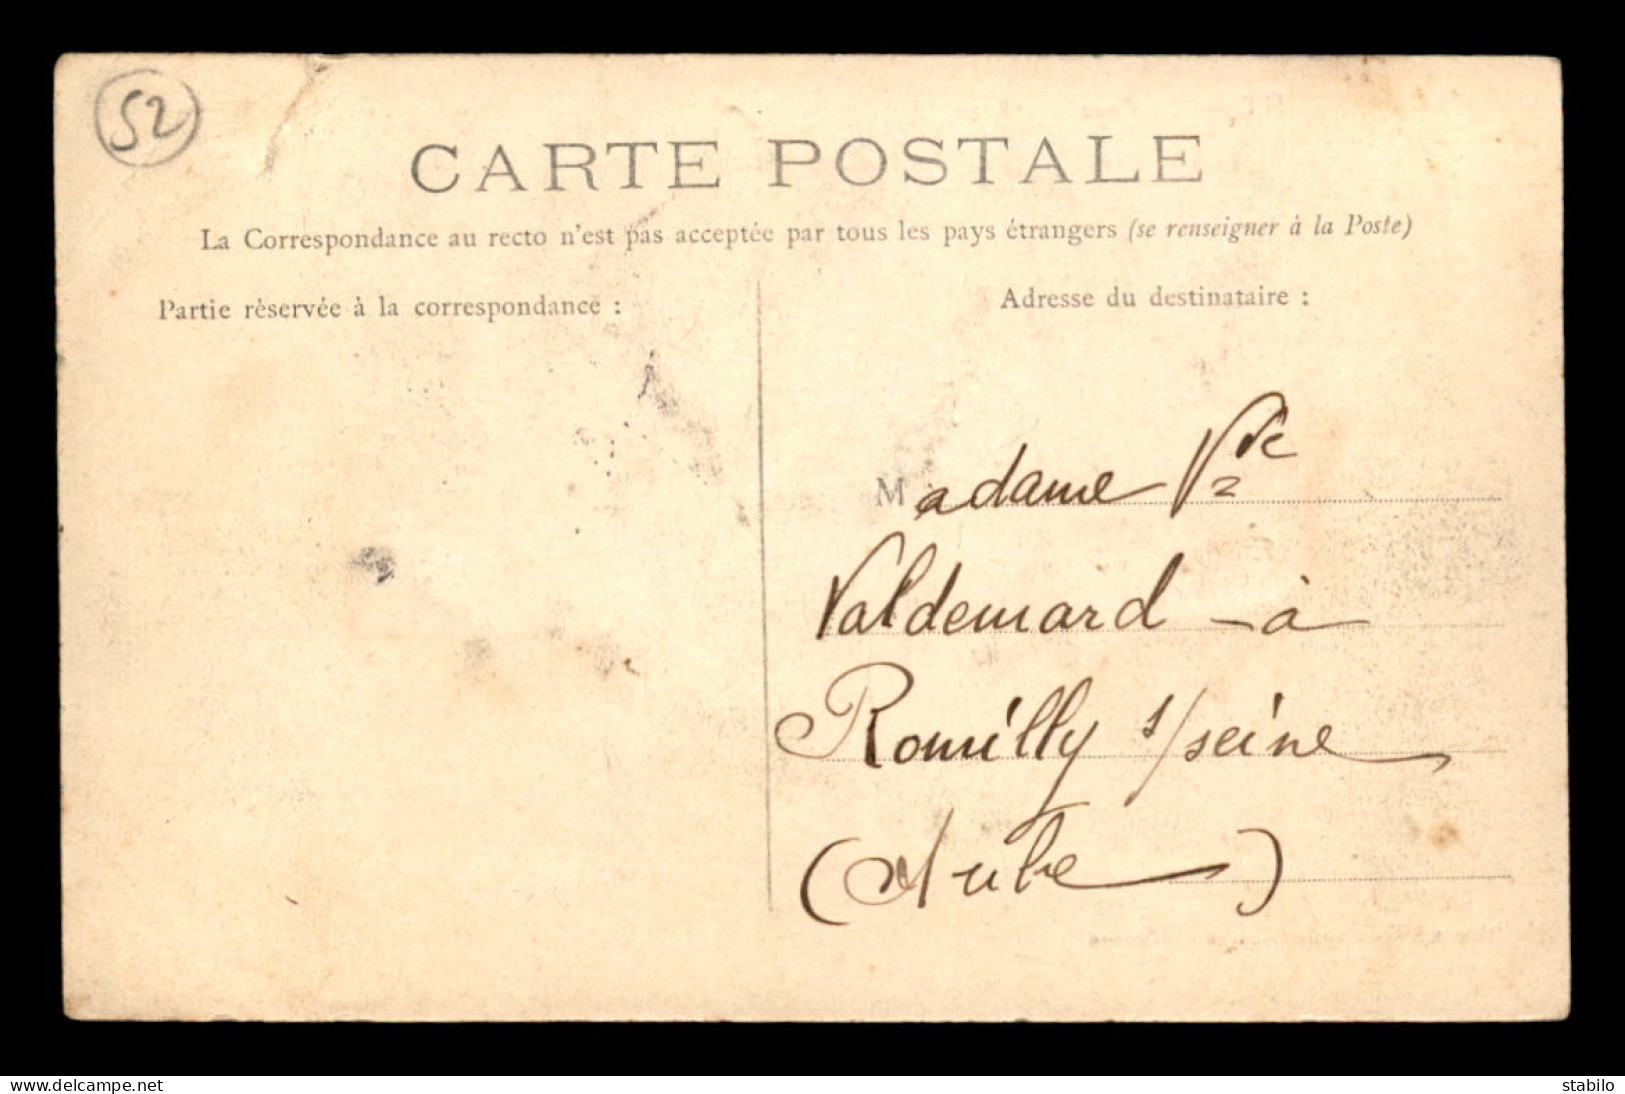 52
CARTE POSTALE
La Correspondance au recto n'est pas acceptée par tous les pays étrangers (se renseigner à la Poste)
Partie rèservée à la correspondance :
Adresse du destinataire :
Madame Vve
Valdemard - à
Romilly s/seine
(Aube)
delcampe.net
stabilo